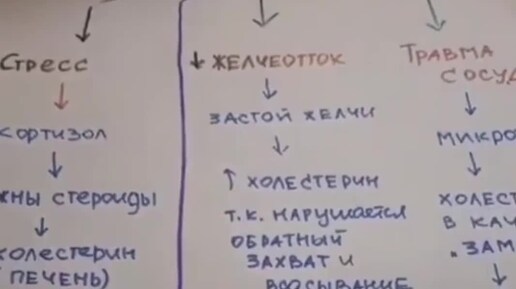 СТРЕСС
КОРТИЗОЛ
СТЕРОИДЫ
(ПЕЧЕНЬ)
↓ ЖЕЛЧЕОТТОК
ЗАСТОЙ ЖЕЛЧИ
↑ ХОЛЕСТЕРИН
Т.К. НАРУШАЕТСЯ
ОБРАТНЫЙ
ЗАХВАТ И
ВСАСЫВАНИЕ
ТРАВМА
СОСУД
МИКРО
ХОЛЕСТ
В КАЧ